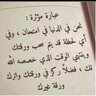 عبارة مؤثرة :
نحن في الدنيا في امتحان ، وفي
أي لحظة قد يتم سحب ورقتك
وينتهي الوقت الذي خصصه الله
لك .. فضلاً ركز في ورقتك واترك
ورقة غيرك